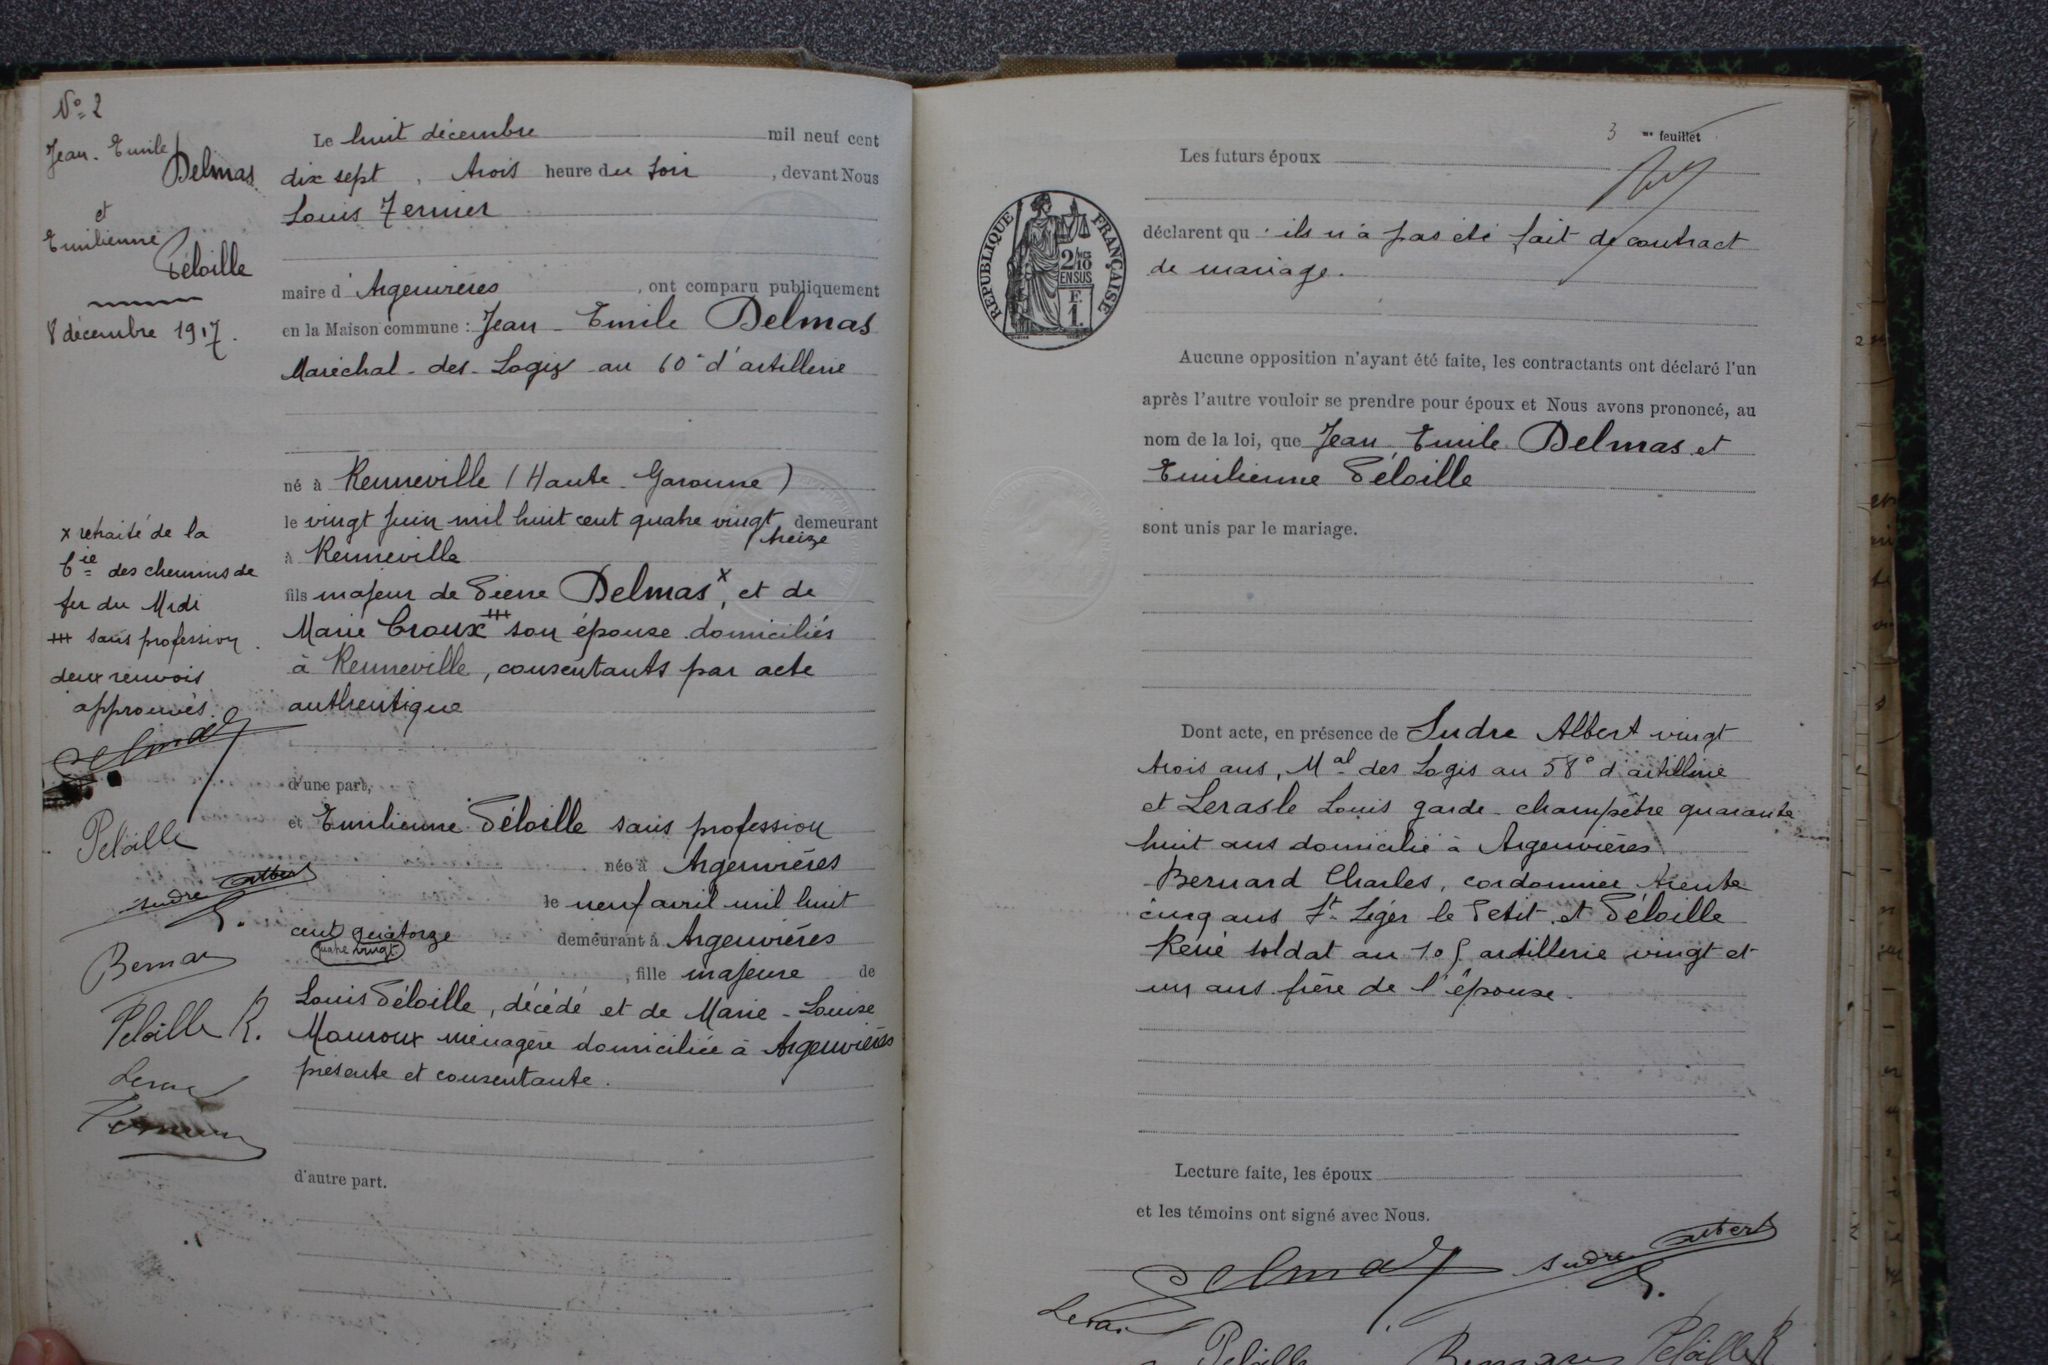 N° 2
Jean-Emile
Delmas
et
Emilienne
Péloille
8 décembre 1917.
x retraité de la
Cie des chemins de
fer du Midi
+++ sans profession.
deux renvois
approuvés.
Delmas
Peloille
Sudre Albert
Bernar
Peloille R.
Le huit décembre mil neuf cent
dix sept, trois heure du soir, devant Nous
Louis Fernier
maire d'Argenvières, ont comparu publiquement
en la Maison commune : Jean-Emile Delmas
Maréchal-des-Logis au 60e d'artillerie
né à Renneville (Haute-Garonne)
le vingt Juin mil huit cent quatre vingt demeurant
treize
à Renneville
fils majeur de Pierre Delmas x, et de
Marie Croux +++ son épouse domiciliés
à Renneville, consentants par acte
authentique
d'une part,
et Emilienne Péloille sans profession
née à Argenvières
le neuf avril mil huit
cent quatorze demeurant à Argenvières
quatre vingt
, fille majeure de
Louis Péloille, décédé et de Marie-Louise
Mauroux ménagère domiciliée à Argenvières
présente et consentante.
d'autre part.
3 me feuillet
REPUBLIQUE FRANÇAISE
2/10
EN SUS
F.
1.
Les futurs époux
déclarent qu'ils n'a pas été fait de contract
de mariage.
Aucune opposition n'ayant été faite, les contractants ont déclaré l'un
après l'autre vouloir se prendre pour époux et Nous avons prononcé, au
nom de la loi, que Jean, Emile Delmas et
Emilienne Péloille
sont unis par le mariage.
Dont acte, en présence de Sudre Albert vingt
trois ans, Mal des Logis au 58e d'artillerie
et Lerasle Louis garde-champêtre quarante
huit ans domicilié à Argenvières
Bernard Charles, cordonnier trente
cinq ans St Léger le Petit et Péloille
René soldat au artillerie vingt et
un ans frère de l'épouse.
Lecture faite, les époux
et les témoins ont signé avec Nous.
Delmas
Sudre Albert
Peloille
Bernar
Peloille R